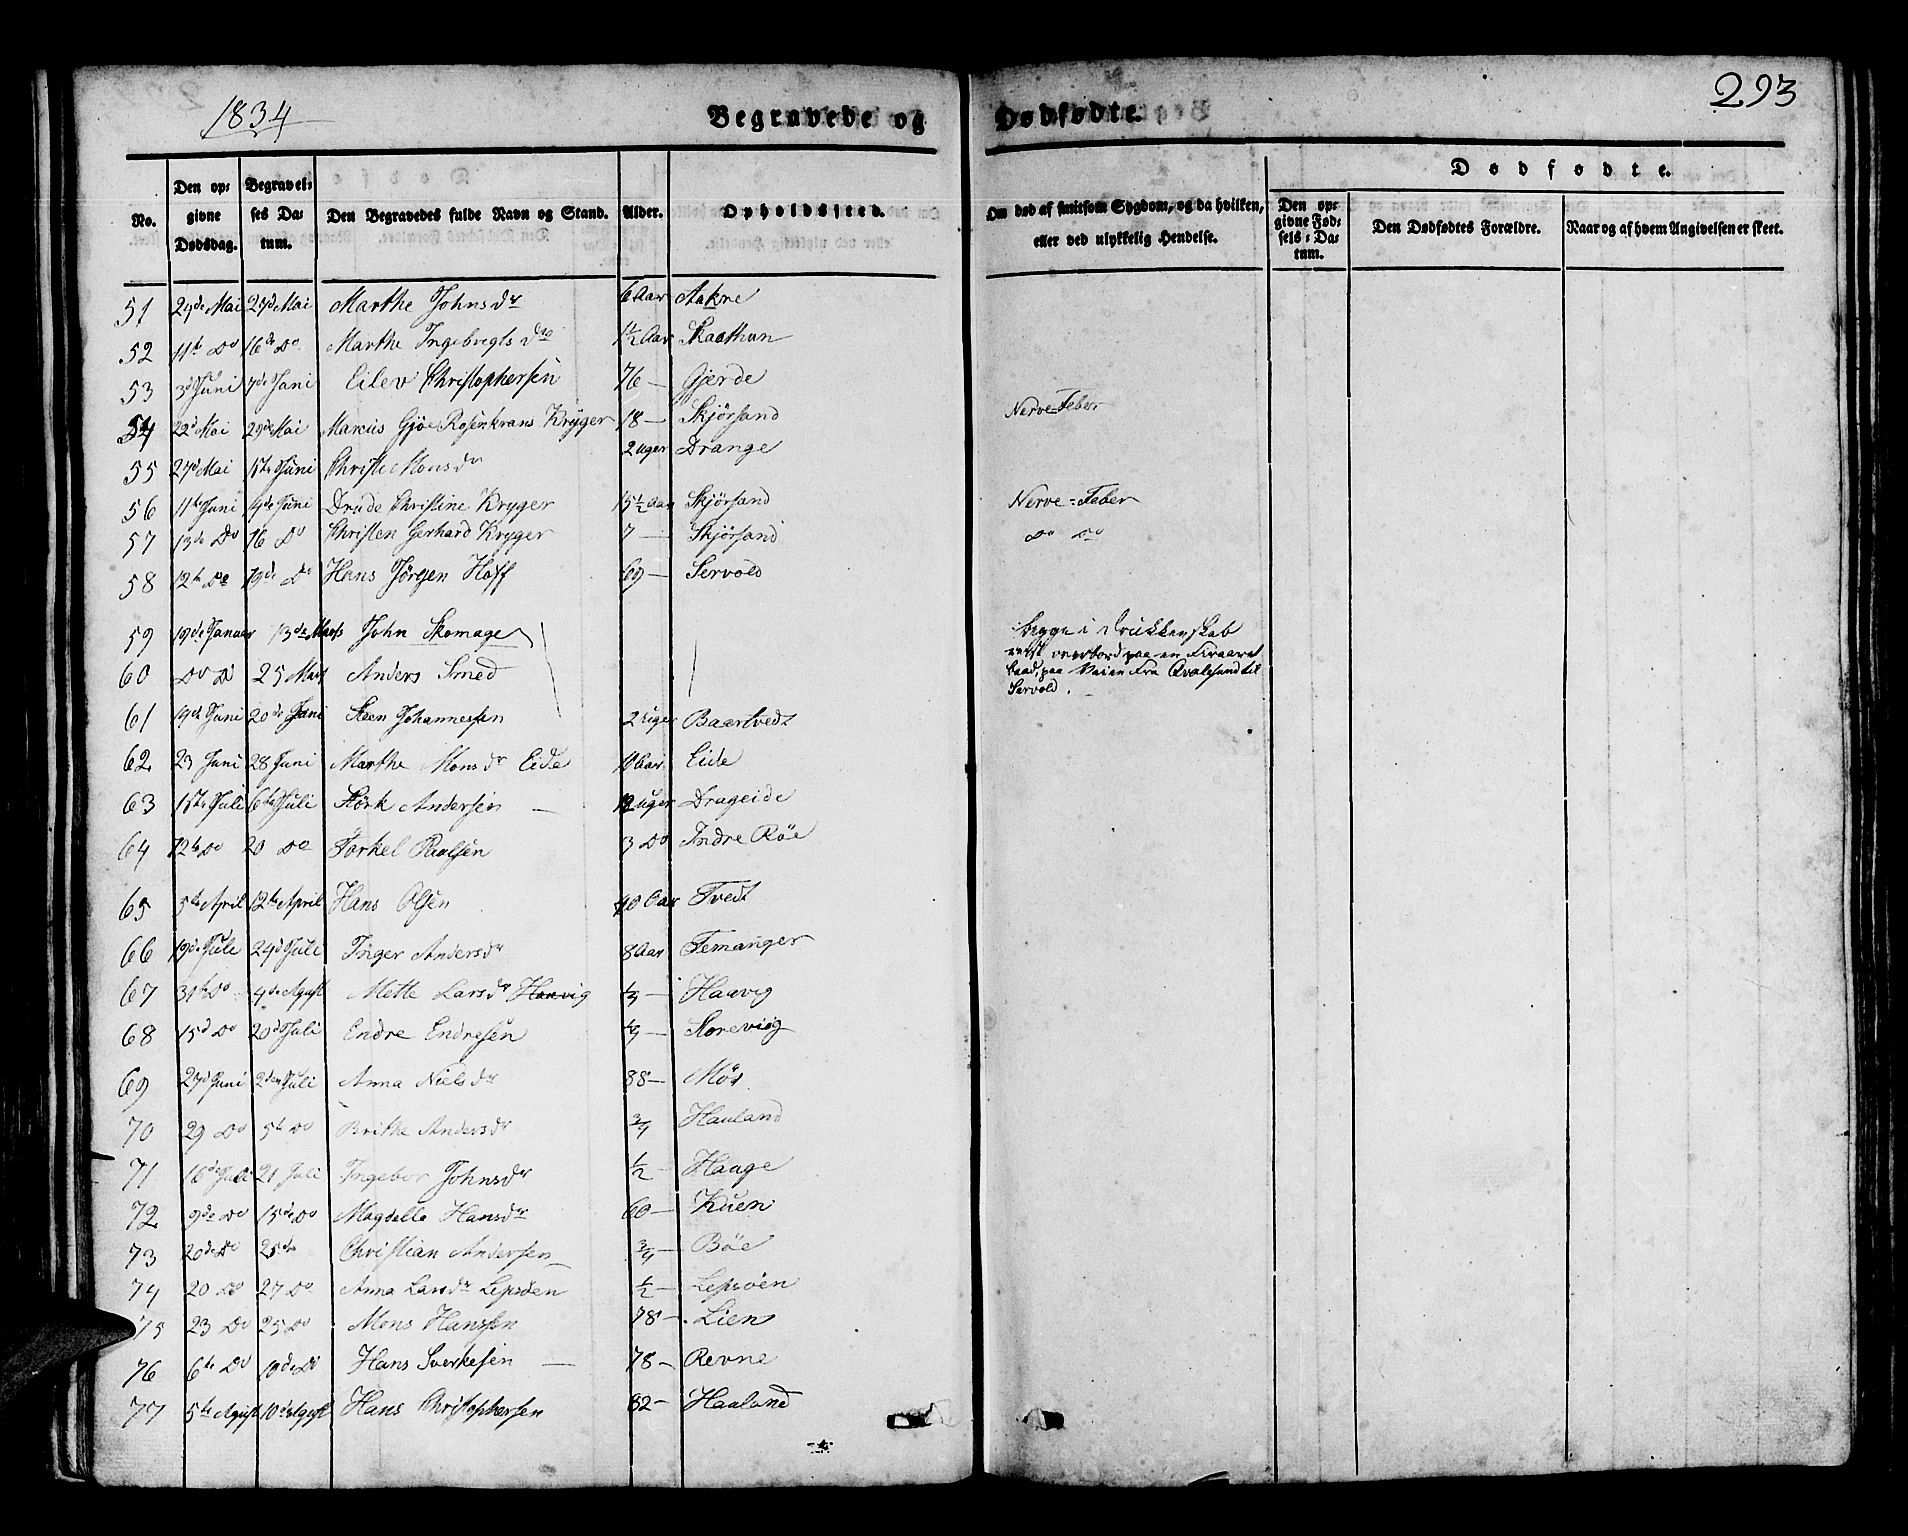 1834
Begravede og Dødfødte.
293
No.
Den opgivne Dødsdag.
Begravelses Datum.
Den Begravedes fulde Navn og Stand.
Alder.
Opholdssted.
Om død af smitsom Sygdom, og da hvilken, eller ved ulykkelig Hendelse.
Dødfødte.
Den opgivne Fødsels-Datum.
Den Dødfødtes Forældre.
Naar og af hvem Angivelsen er skeet.
51 Mai Mai Marthe Johnsdr 6 Aar Aakre
52 11te Do 16de Do Marthe Ingebrigtsdr 1½ Aar Skaathun
53 3d Juni 7de Juni Eilev Christophersen 76 — Gjerde
54 22d Mai 29de Mai Marcus Gjøe Rosenkrans Kryger 18 — Skjørsand Nerve-Feber
55 27d Mai 1ste Juni Christi Monsdr 2 uger Drange
56 11te Juni 19de Juni Drude Christine Kryger 15½ Aar Skjørsand Nerve-Feber
57 13de Do 16 Do Christen Gerhard Kryger 7 — Skjørsand Do Do
58 12te Do 19de Do Hans Jørgen Hoff 69 — Servold
59 19de Januar 13de Marts John Skomager
60 Do Do 25 Marts Anders Smed
begge i Drukkenskab
overbord paa en Firaaret
baad, paa Veien Fra Qvalesund til
Servold.
61 19de Juni 20de Juni Steen Johannessen 2 uger Baartvedt
62 23 Juni 28 Juni Marthe Monsdr Eide 10 Aar Eide
63 1ste Juli 6te Juli Størk Andersen — 12 uger Drageide
64 12te Do 20 Do Torkel Paulsen 3 Do Indre Røe
65 5te April 12te April Hans Olsen 40 Aar Tvedt
66 19de Juli 29d Juli Inger Andersdr 8 Aar Femanger
67 31te Do 4de Agust Mette Larsdr Haavig ¼ — Haavig
68 15d Do 20d Juli Endre Endresen ¼ — Storeviig
69 27d Juni 2den Juli Anna Nielsdr 88 — Møs
70 29 Do 5te Do Brithe Andersdr ¾ Hauland
71 16de Juli 21 Juli Ingebor Johnsdr ½ — Haage
72 9de Do 15de Do Magdella Hansdr 60 — Kuen
73 20de Do 25de Christian Andersen ¾ — Bøe
74 20 Do 27 Do Anna Larsdr Lepsøen ½ — Lepsøen
75 23 Do 25 Do Mons Hanssen 78 — Lien
76 6te Do 10de Do Hans Sverkesen — 78 — Revne
77 5te Agust 10de Agust Hans Christophersen 82 — Haaland